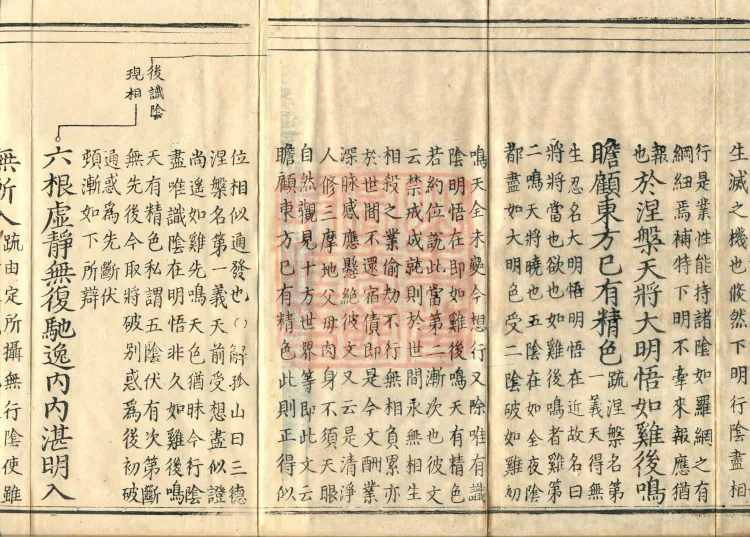 生滅之機也倐然下明行陰盡相
行是業性能持諸陰如羅網之有
綱紐焉補特下明不牽來報應猶
報也
於涅槃天將大明悟如雞後鳴
瞻顧東方已有精色
疏涅槃名第
一義天得無
生忍名大明悟明悟在近故名曰
將將當也欲也如雞後鳴者雞第
二鳴天將曉也五陰在如全夜陰
都盡如大明色受二陰破如雞初
鳴天全未變今想行又除唯有識
陰明悟在即如雞後鳴天有精色
若約位說此當第二漸次也彼文
云禁戒成就則於世間永無相生
相殺之業偷劫不行無相負累亦
於世間不還宿債即是今文酬業
深脉感應懸絕彼文又云是清淨
人修三摩地父母肉身不須天眼
自然觀見十方世界等即此文云
瞻顧東方已有精色此則正得似
位相似通發也
解孤山曰三德
涅槃名第一義天前受想盡似證
尚遙如雞先鳴天色猶昧今行陰
盡唯識陰在明悟非久如雞後鳴
天有精色私謂五陰伏有次第斷
無先後今取將破別惑為後初破
通惑為先斷伏
頓漸如下所辯
後識陰
現相
六根虛靜無復馳逸內內湛明入
無所入
疏由定所攝無行陰使雖